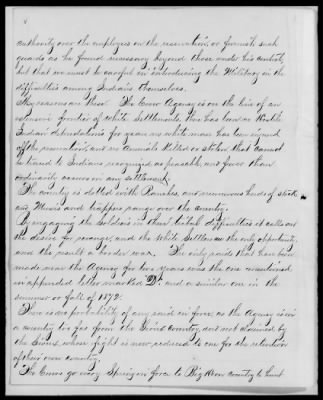 authority over the employees on the reservation, or furnish such
guards as he found necessary beyond those under his control,
but that we must be careful in introducing the Military in the
difficulties among Indians themselves.
My reasons are these. The Crow Agency is on the line of an
extensive frontier of white Settlements, there has been no Hostile
Indian depredations for years no white man has been injured
off the reservation, and no Animals Killed or stolen that cannot
be traced to Indians recognized as peaceable, and fewer than
ordinarily occurs in any settlement.
The country is dotted with Ranches, and numerous herds of stock
and Miners and trappers range over the country.
By engaging the Soldiers in their tribal difficulties it calls out
the desire for revenge, and the white Settlers are the only opportunity,
and the result a border war. The only raids that have been
made near the Agency for two years was the one mentioned
in appended letter marked "D", and a similar one in the
summer or fall of 1872.
There is no probability of any raid in force, as the Agency is in
a country too far from the Sioux country, and not claimed by
the Sioux, whose fight is now reduced to one for the retention
of their own country.
The Crows go every Spring in force to Big Horn country to hunt